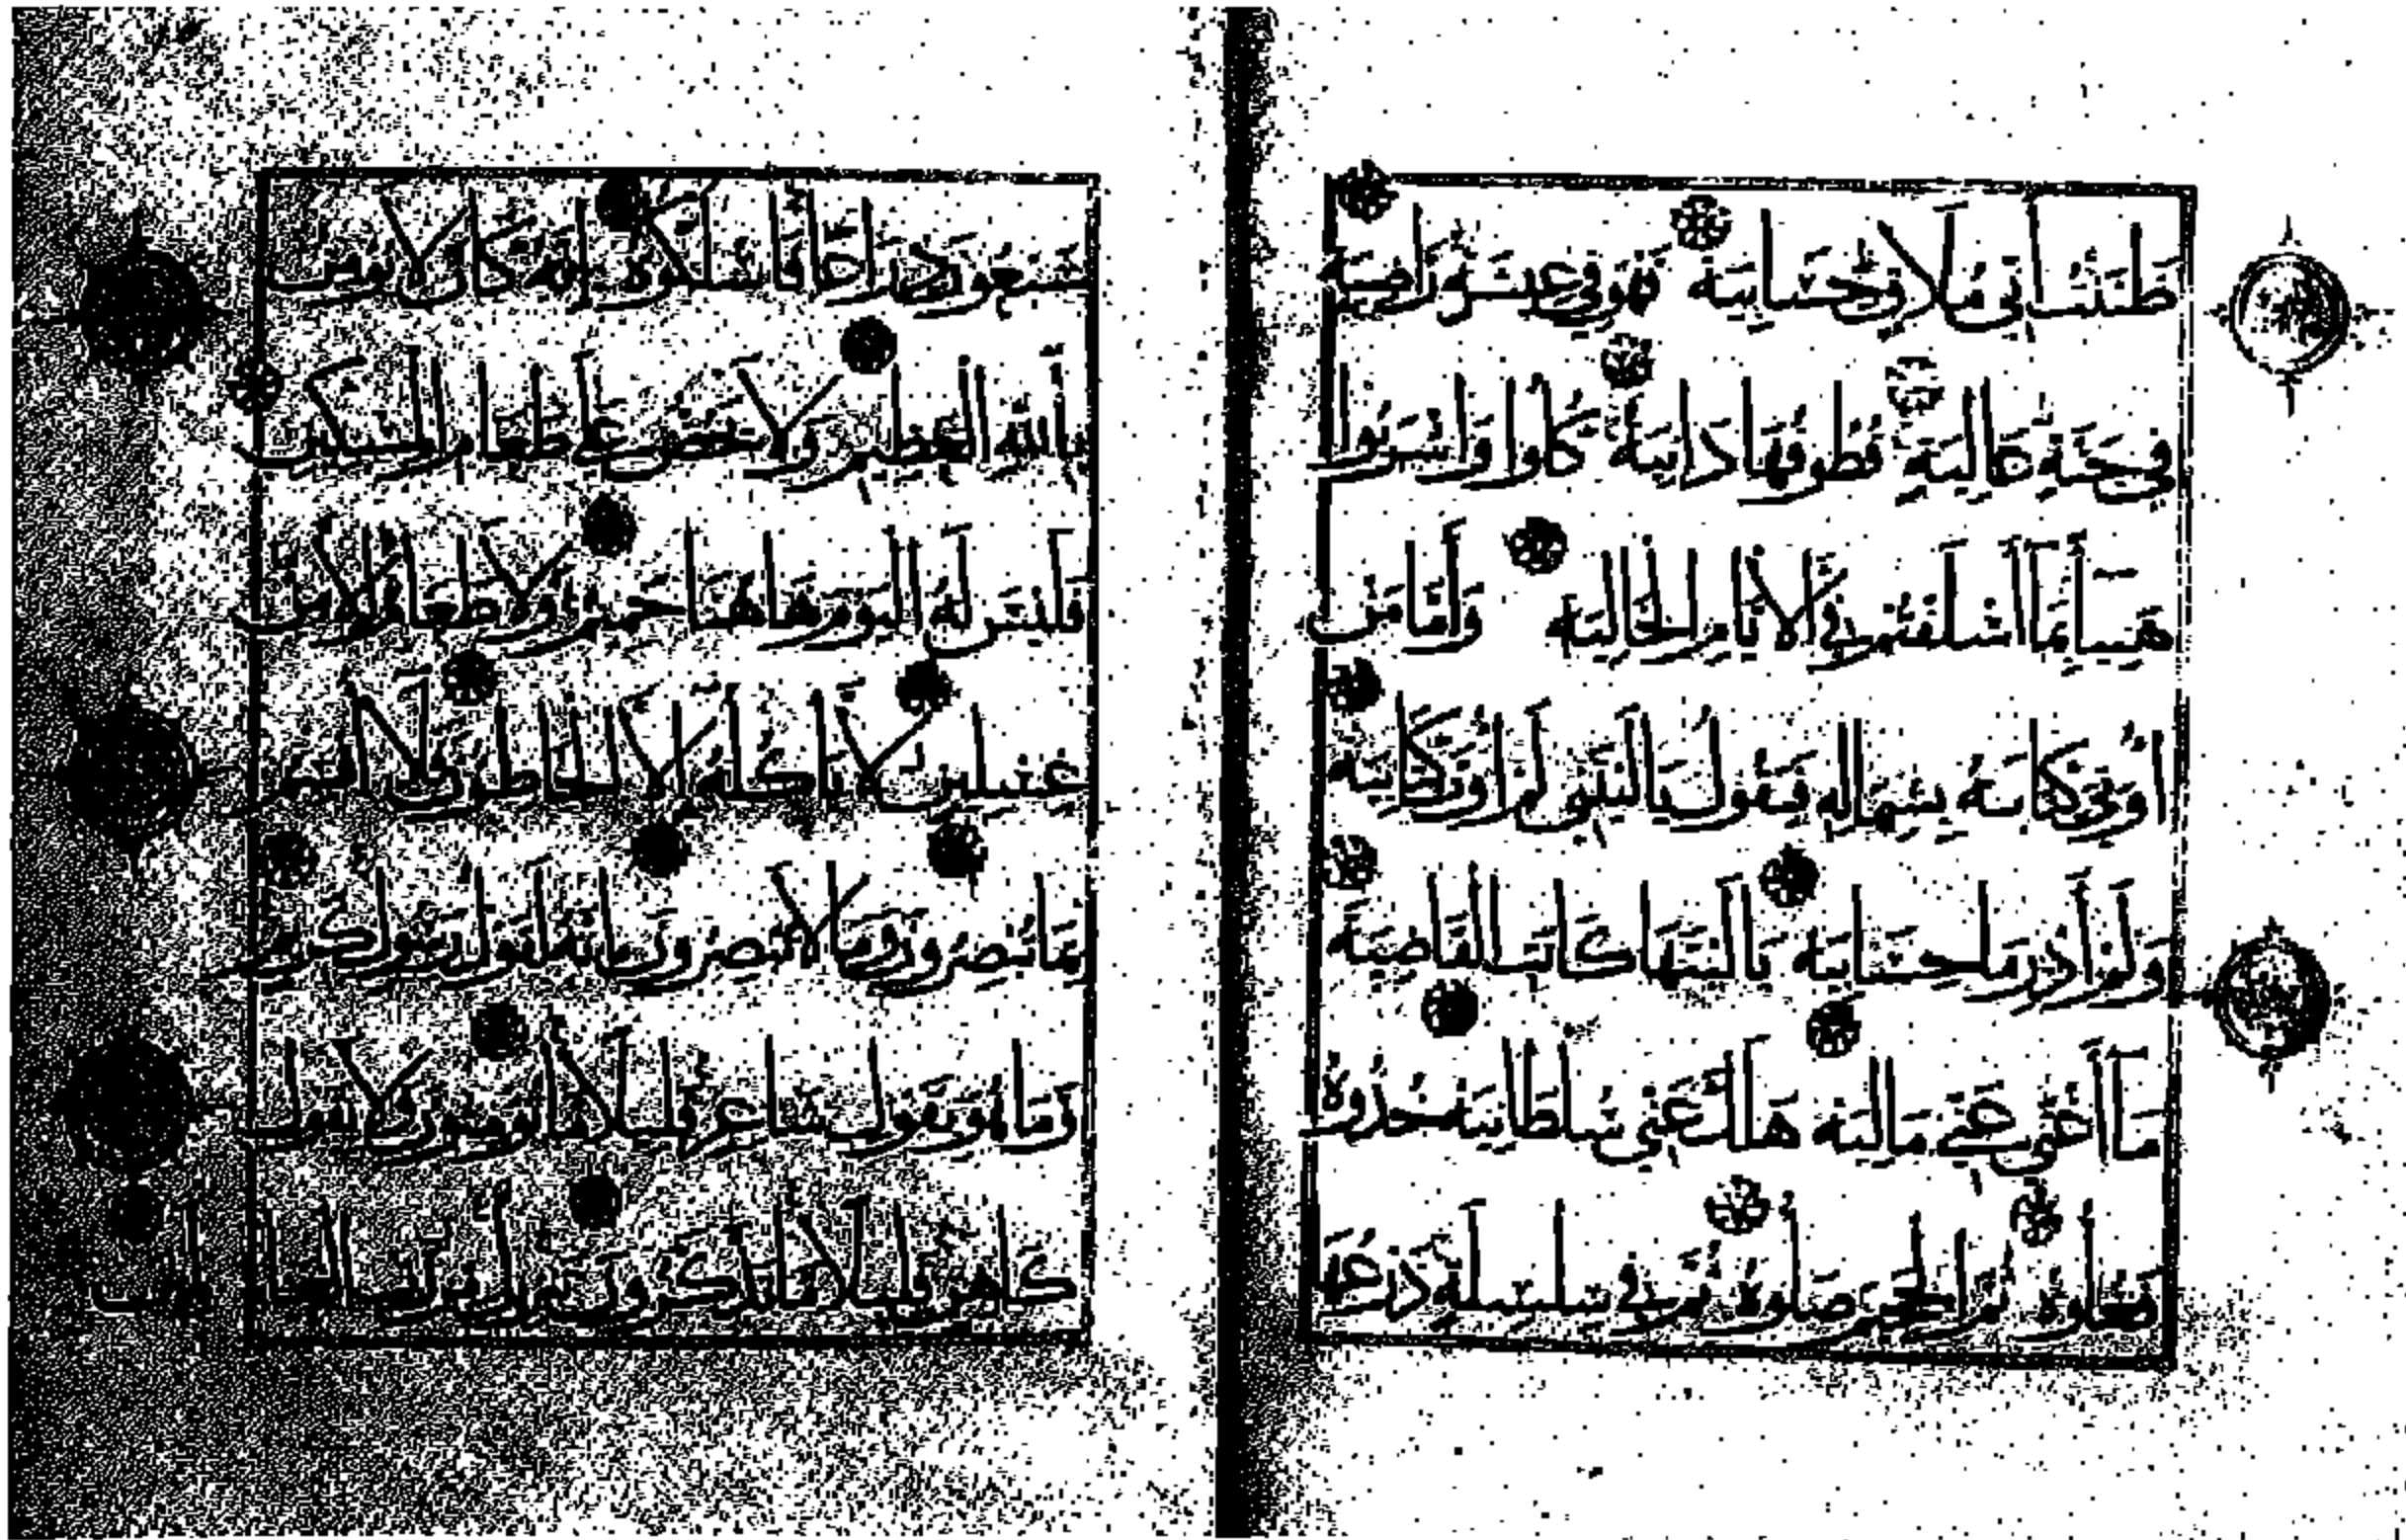 ظَنَنْتُ أَنِّي مُلَاقٍ حِسَابِيَهْ فَهُوَ فِي عِيشَةٍ رَاضِيَةٍ
فِي جَنَّةٍ عَالِيَةٍ قُطُوفُهَا دَانِيَةٌ كُلُوا وَاشْرَبُوا
هَنِيئًا بِمَا أَسْلَفْتُمْ فِي الْأَيَّامِ الْخَالِيَةِ وَأَمَّا مَنْ
أُوتِيَ كِتَابَهُ بِشِمَالِهِ فَيَقُولُ يَالَيْتَنِي لَمْ أُوتَ كِتَابِيَهْ
وَلَمْ أَدْرِ مَا حِسَابِيَهْ يَالَيْتَهَا كَانَتِ الْقَاضِيَةَ
مَا أَغْنَى عَنِّي مَالِيَهْ هَلَكَ عَنِّي سُلْطَانِيَهْ خُذُوهُ
فَغُلُّوهُ ثُمَّ الْجَحِيمَ صَلُّوهُ ثُمَّ فِي سِلْسِلَةٍ ذَرْعُهَا
سَبْعُونَ ذِرَاعًا فَاسْلُكُوهُ إِنَّهُ كَانَ لَا يُؤْمِنُ
بِاللَّهِ الْعَظِيمِ وَلَا يَحُضُّ عَلَى طَعَامِ الْمِسْكِينِ
فَلَيْسَ لَهُ الْيَوْمَ هَاهُنَا حَمِيمٌ وَلَا طَعَامٌ إِلَّا مِنْ
غِسْلِينٍ لَا يَأْكُلُهُ إِلَّا الْخَاطِئُونَ فَلَا أُقْسِمُ
بِمَا تُبْصِرُونَ وَمَا لَا تُبْصِرُونَ إِنَّهُ لَقَوْلُ رَسُولٍ كَرِيمٍ
وَمَا هُوَ بِقَوْلِ شَاعِرٍ قَلِيلًا مَا تُؤْمِنُونَ وَلَا بِقَوْلِ
كَاهِنٍ قَلِيلًا مَا تَذَكَّرُونَ تَنْزِيلٌ مِنْ رَبِّ الْعَالَمِينَ